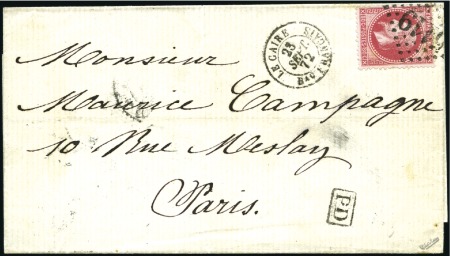 LE CAIRE
25
SEPT.
72
Monsieur
Maurice Campagne
10 Rue Meslay
Paris.
PD